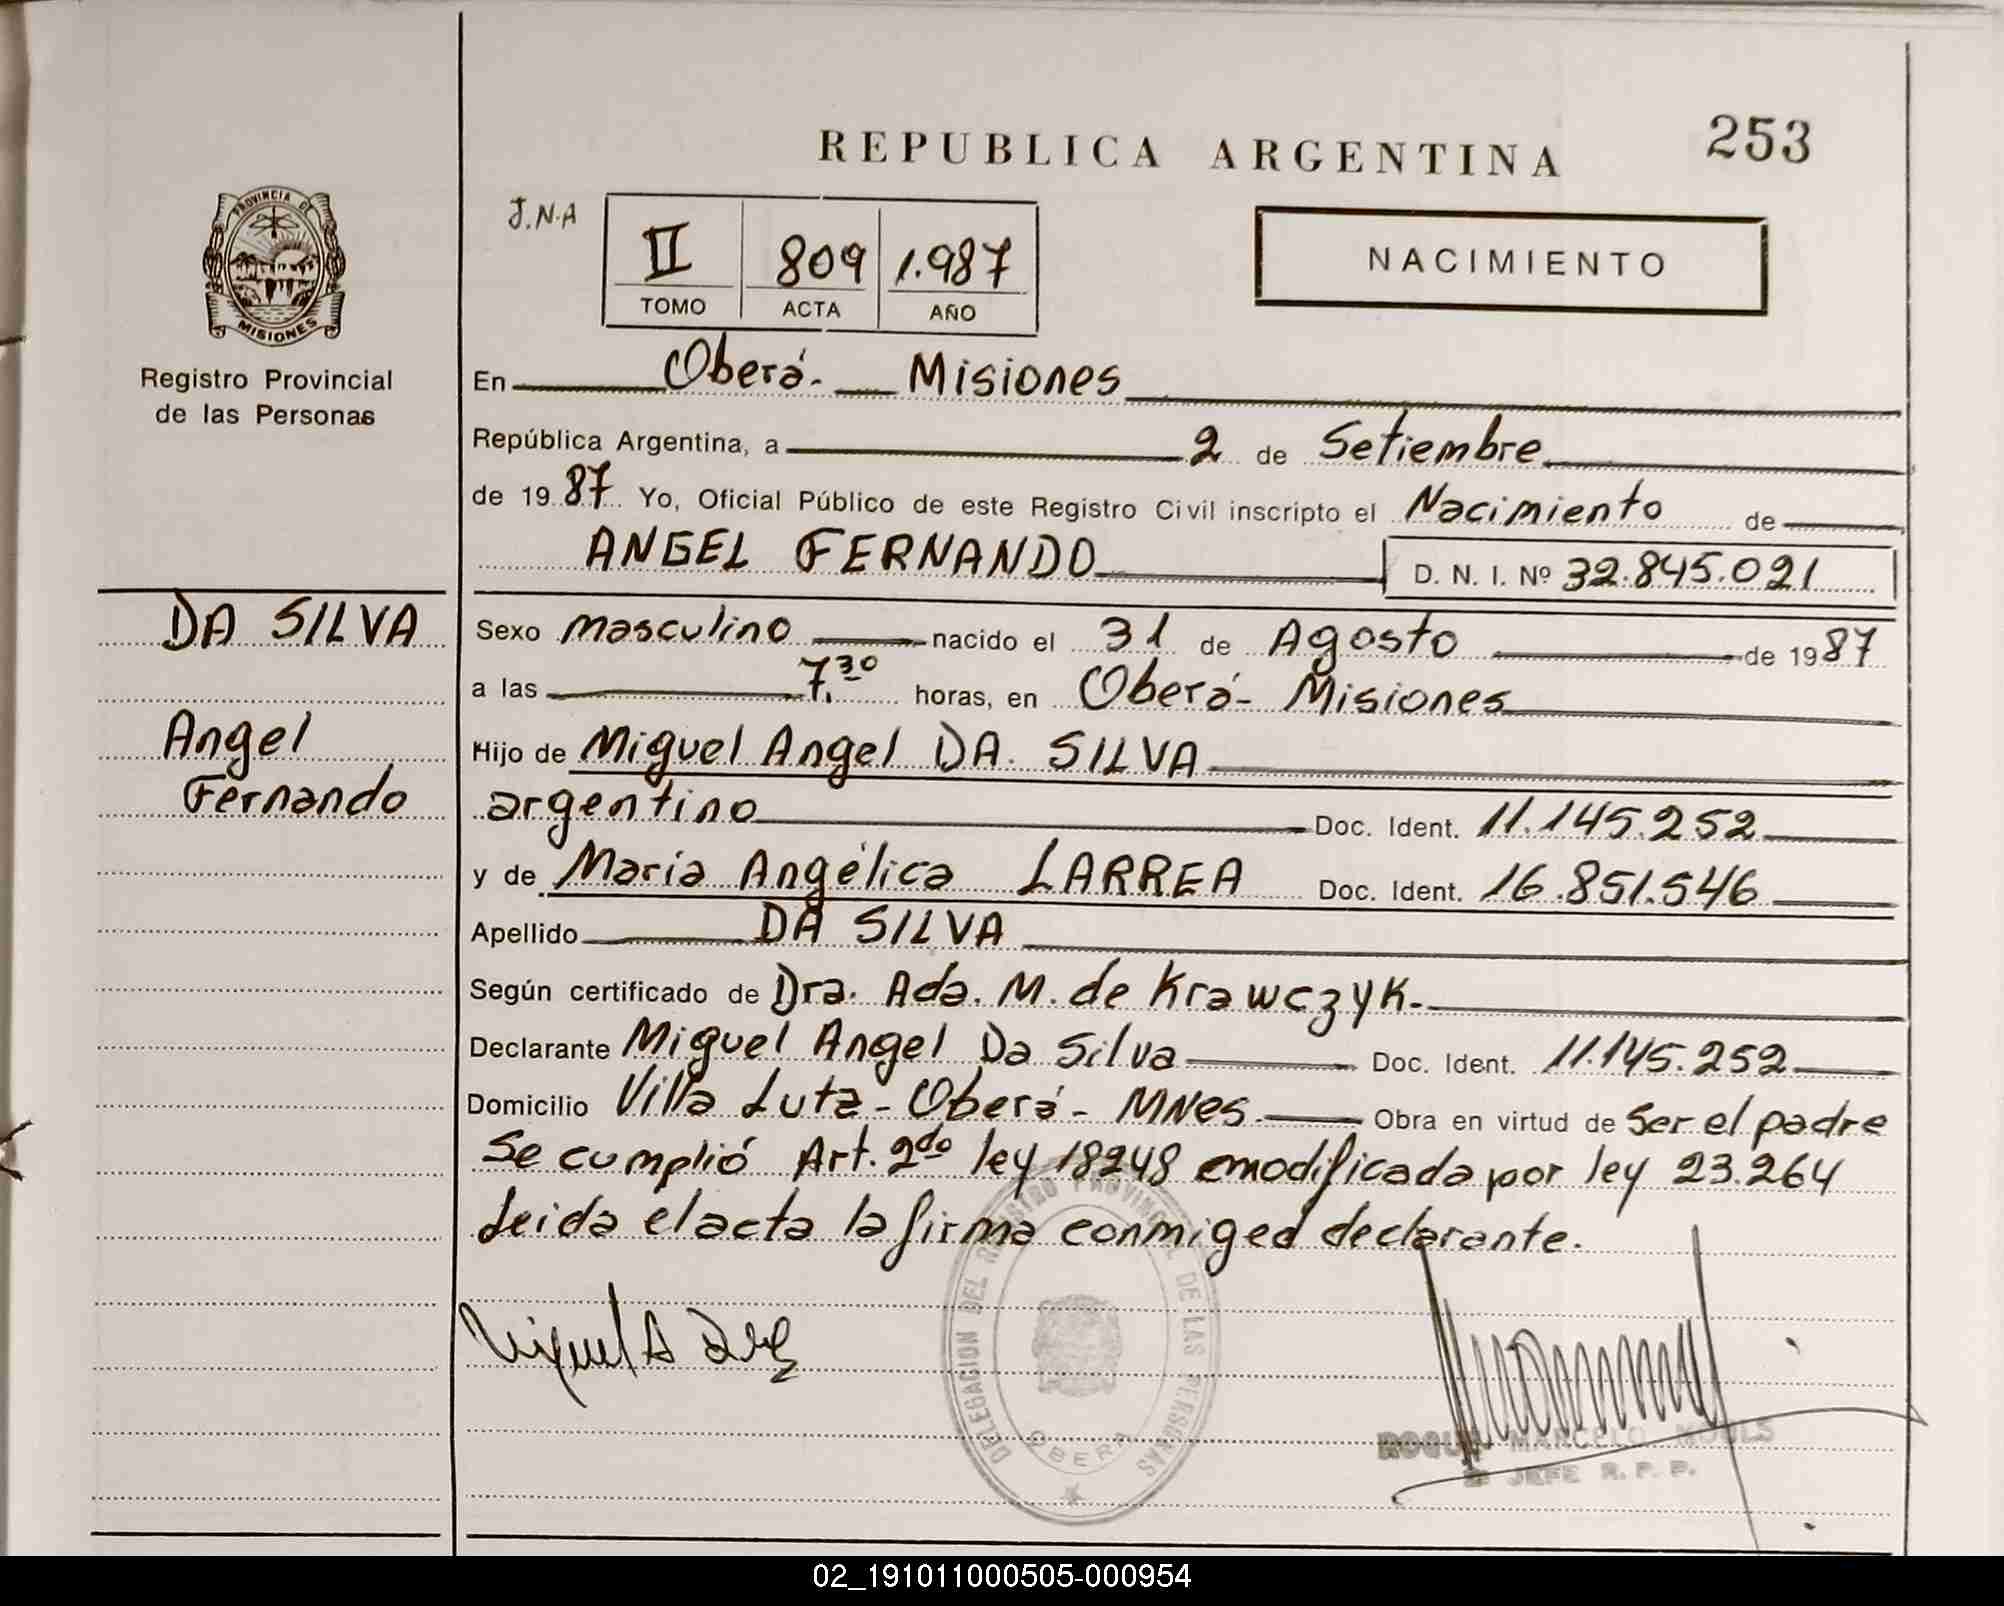 REPUBLICA ARGENTINA
253
PROVINCIA DE
MISIONES
Registro Provincial
de las Personas
J.N.A
II 809 1.987
TOMO ACTA AÑO
NACIMIENTO
En Oberá - Misiones
República Argentina, a 2 de Setiembre
de 1987 Yo, Oficial Público de este Registro Civil inscripto el Nacimiento de
ANGEL FERNANDO D. N. I. Nº 32.845.021
DA SILVA
Angel
Fernando
Sexo masculino nacido el 31 de Agosto de 1987
a las 7.30 horas, en Oberá - Misiones
Hijo de Miguel Angel DA SILVA
argentino Doc. Ident. 11.145.252
y de María Angélica LARREA Doc. Ident. 16.851.546
Apellido DA SILVA
Según certificado de Dra. Ada. M. de Krawczyk.
Declarante Miguel Angel Da Silva Doc. Ident. 11.145.252
Domicilio Villa Luta - Oberá - MNes. Obra en virtud de Ser el padre
Se cumplió Art. 2do ley 18248 modificada por ley 23.264
Leida el acta la firma conmigo el declarante.
Miguel A
DELEGACION DEL REGISTRO PROVINCIAL DE LAS PERSONAS
OBERA
MARCELO
JEFE R. P. P.
02_191011000505-000954